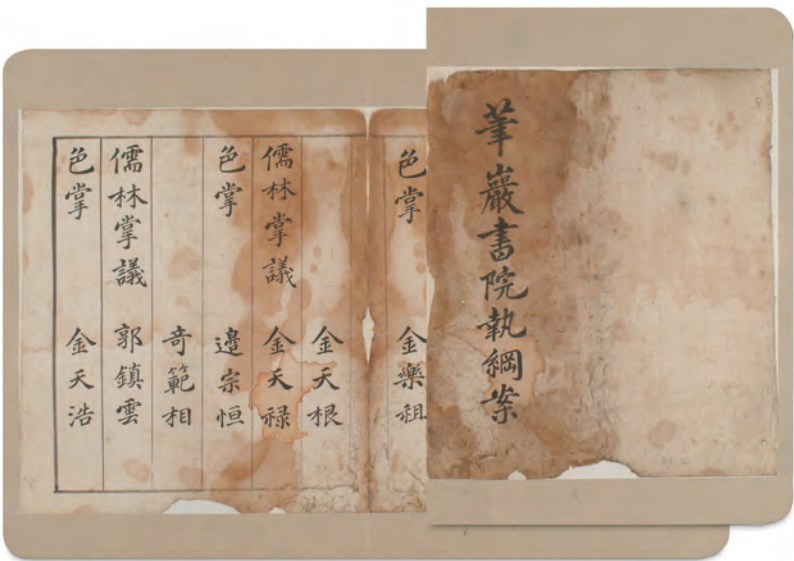 筆巖書院執綱案
色掌 金樂祖
金天根
儒林掌議 金天禄
色掌 邊宗恒
奇範相
儒林掌議 郭鎮雲
色掌 金天浩